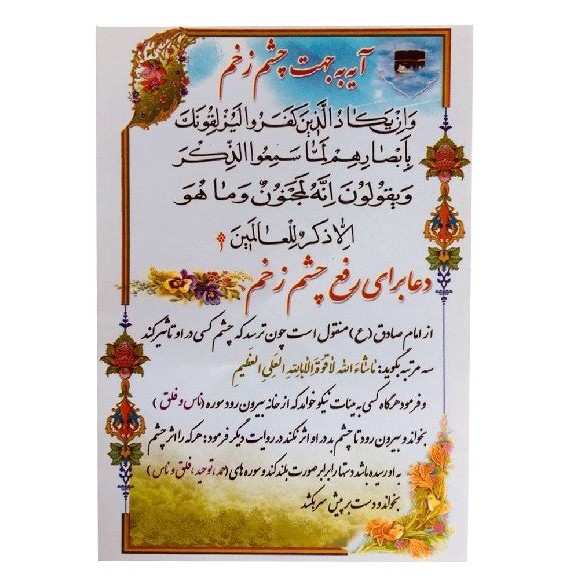 آیه به جهت چشم زخم
وَاِنْ یَکٰادُ الَّذینَ کَفَرُوا لَیُزْلِقُونَکَ
بِاَبْصٰارِهِمْ لَمّٰا سَمِعُوا الذِّکْرَ
وَیَقُولُونَ اِنَّهُ لَمَجْنُونٌ وَمٰا هُوَ
اِلّٰا ذِکْرٌ لِلْعٰالَمینَ
دعا برای رفع چشم زخم
از امام صادق (ع) منقول است چون ترسد که چشم کسی در او تاثیر کند
سه مرتبه بگوید: ماشاءَ الله لا قوّةَ اِلّا بِاللهِ العَلیِ العَظیم
و فرمود هرگاه کسی به هیئات نیکو خواهد که از خانه بیرون رود سوره (ناس و فلق)
بخواند و بیرون رود تا چشم بد در او اثر نکند در روایت دیگر فرمود: هر که را اثر چشم
به او رسیده باشد دستها را برابر صورت بلند کند و سوره های (حمد، توحید، فلق و ناس)
بخواند و دست بر پیش سر بکشد